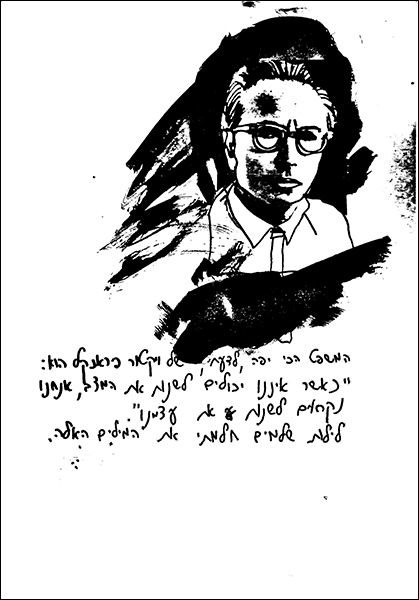 המשפט הכי יפה, לדעתי, של ויקטור פראנקל הוא:
"כאשר איננו יכולים לשנות את המצב, אנחנו
נקראים לשנות את עצמנו".
לילות שלמים חלמתי את המילים האלה.